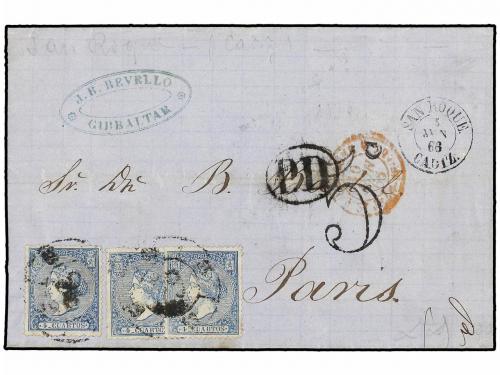 San Roque - (Cadiz)
J. R. REVELLO
GIBRALTAR
SAN ROQUE
5
JUN
66
CADIZ.
Sr. Dn B.
P.D.
5
Paris.
4 CUARTOS
4 CUARTOS
4 CUARTOS